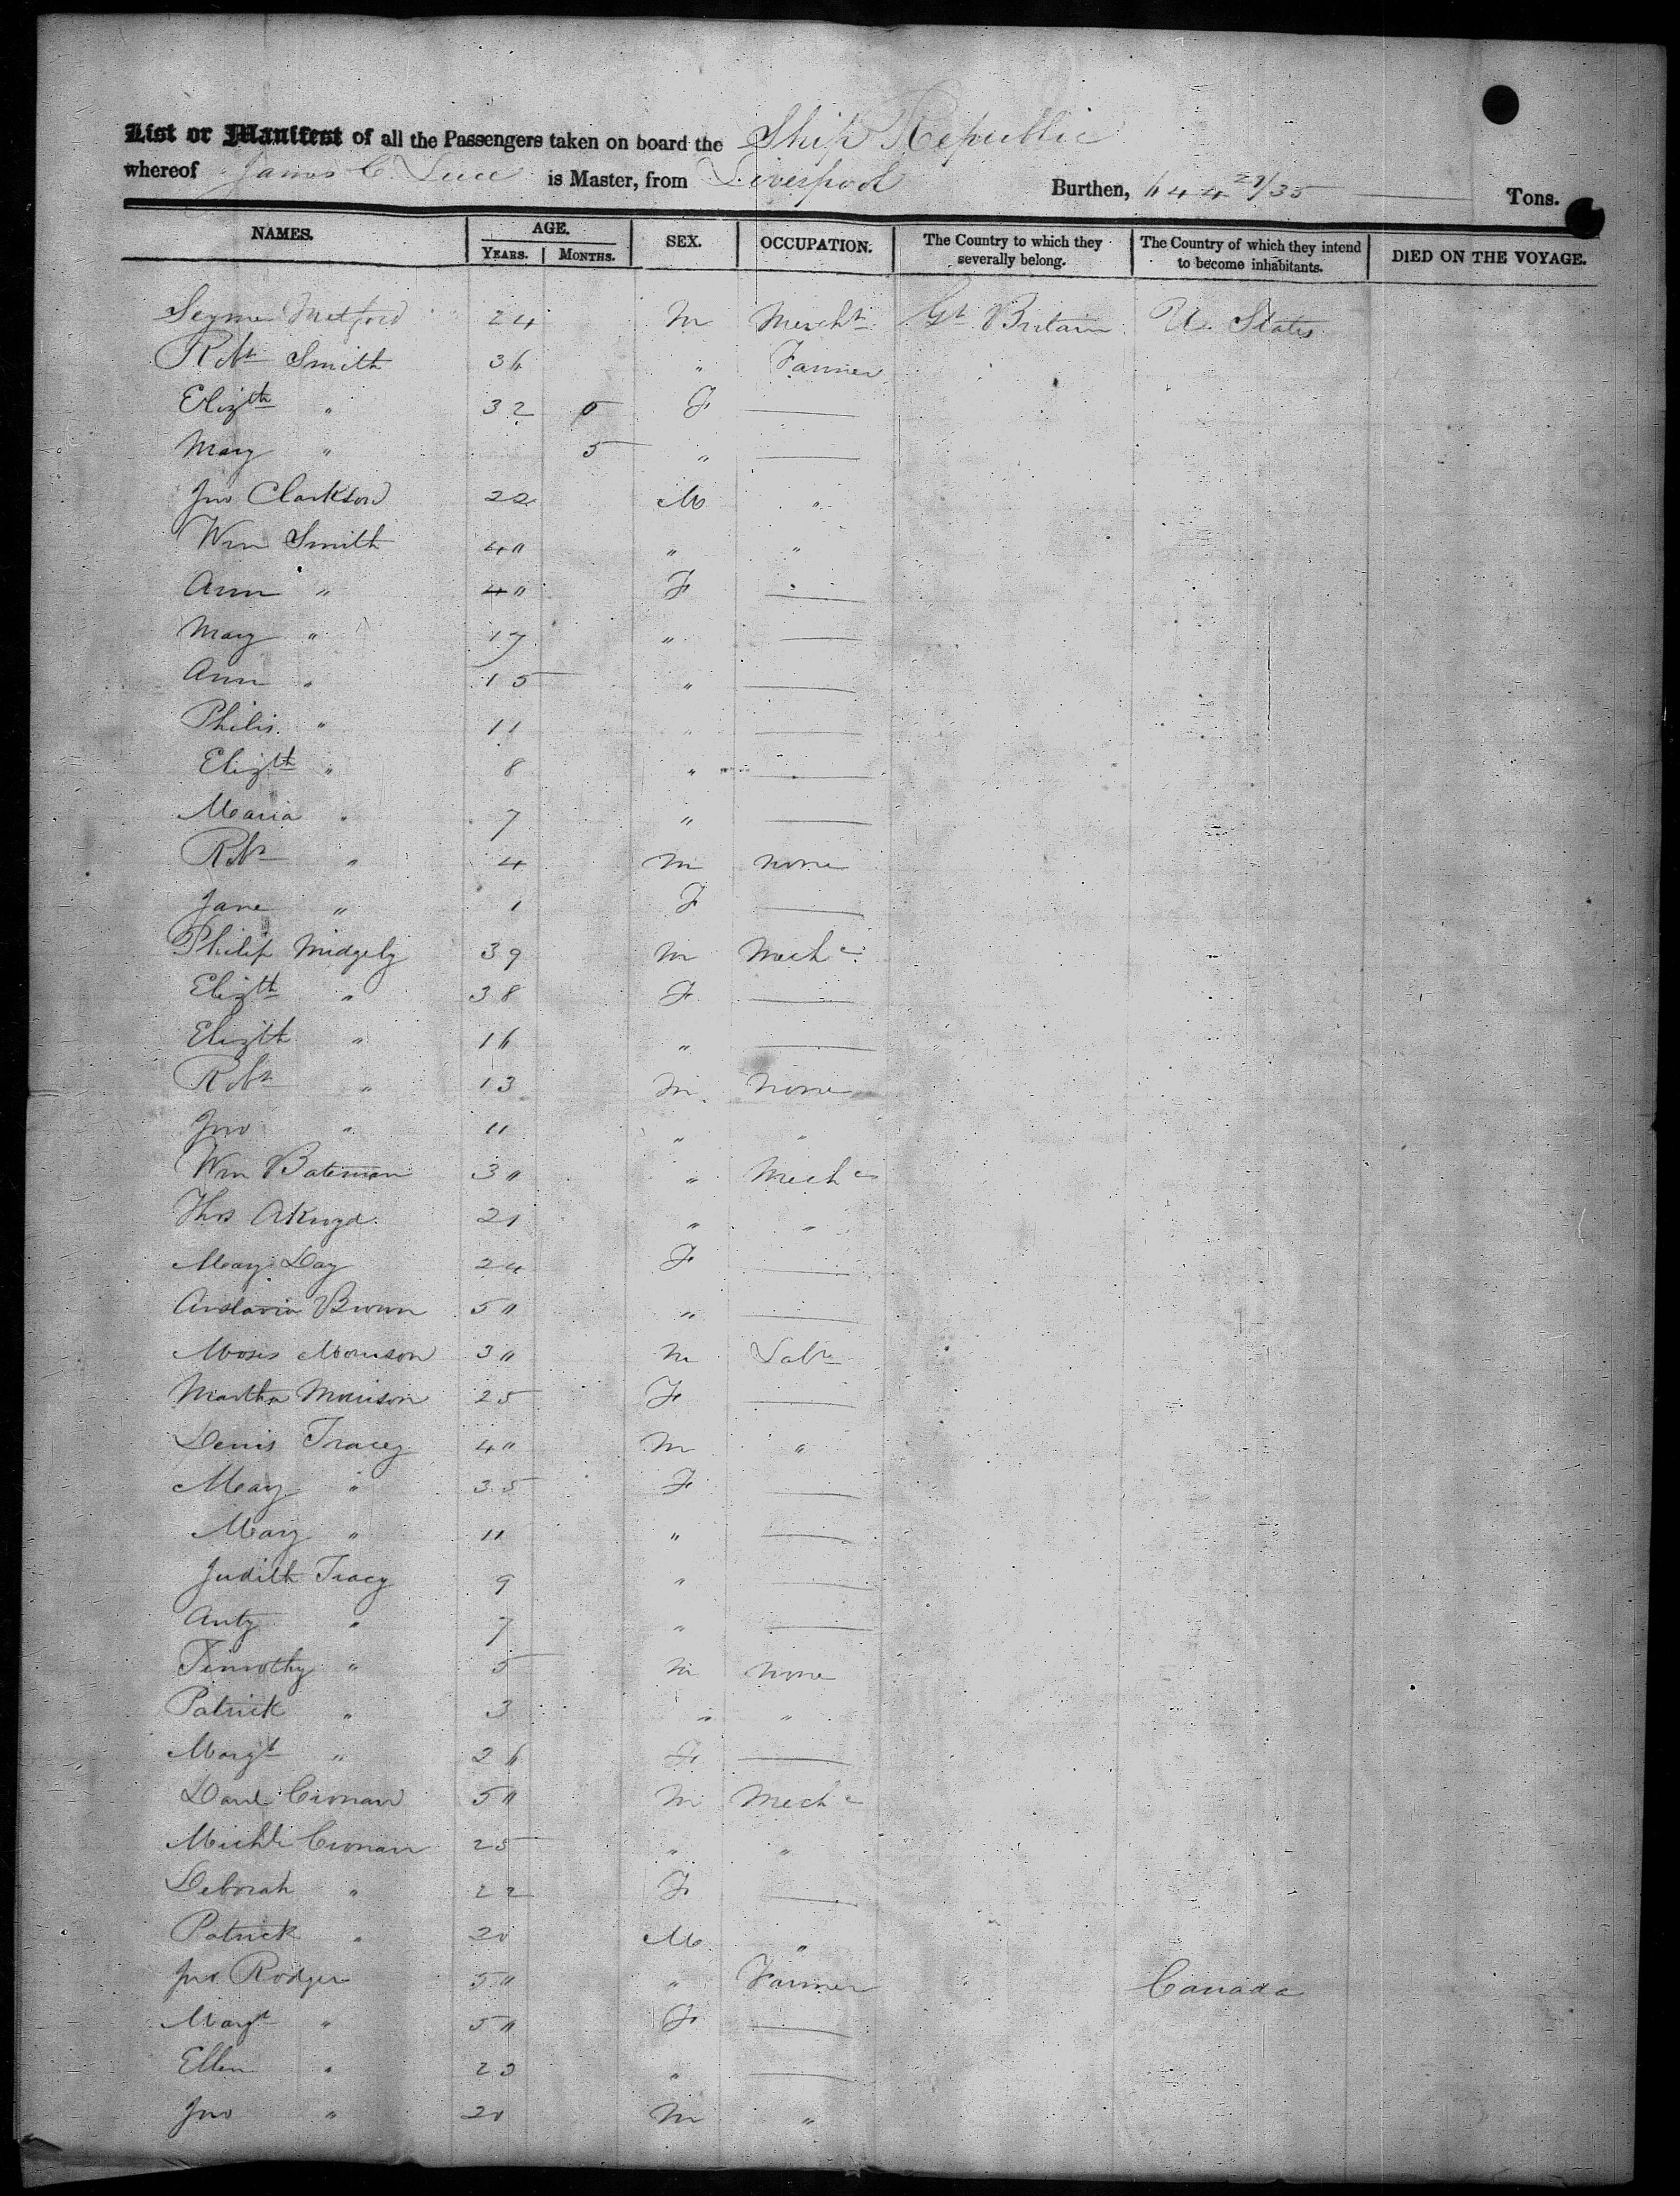 List or Manifest of all the Passengers taken on board the Ship Republic
whereof James C. Luce is Master, from Liverpool Burthen, 644 Tons.
NAMES. AGE. YEARS. MONTHS. SEX. OCCUPATION. The Country to which they severally belong. The Country of which they intend to become inhabitants. DIED ON THE VOYAGE.
24 M Mercht Gt Britain U. States
Robt Smith 36 " Farmer
Elizth " 32 F —
Mary " 5 " —
Jno Clarkson 22 M "
Wm Smith 40 " "
Ann " 40 F —
Mary " 17 " —
Ann " 15 " —
Philis " 11 " —
Elizth " 8 " —
Maria " 7 " —
Robt " 4 M none
Jane " 1 F —
Philip Midgely 39 M Mechc
Elizth " 38 F —
Elizth " 16 " —
Robt " 13 M none
Jno " 11 " "
Wm Bateman 30 " Mechc
Thos Akroyd 21 " "
Mary Day 24 F —
Brown 50 " —
Moses Morrison 30 M Labr
Martha Morrison 25 F —
Denis Tracey 40 M "
Mary " 35 F —
Mary " 11 " —
Judith Tracy 9 " —
Anty " 7 " —
Timothy " 5 M none
Patrick " 3 " "
Margt " 26 F —
Danl Cronan 50 M Mechc
Michl Cronan 25 " "
Deborah " 22 F —
Patrick " 20 M "
Jno Rodger 50 " Farmer Canada
Margt " 50 F —
Ellen " 23 " —
Jno " 20 M "